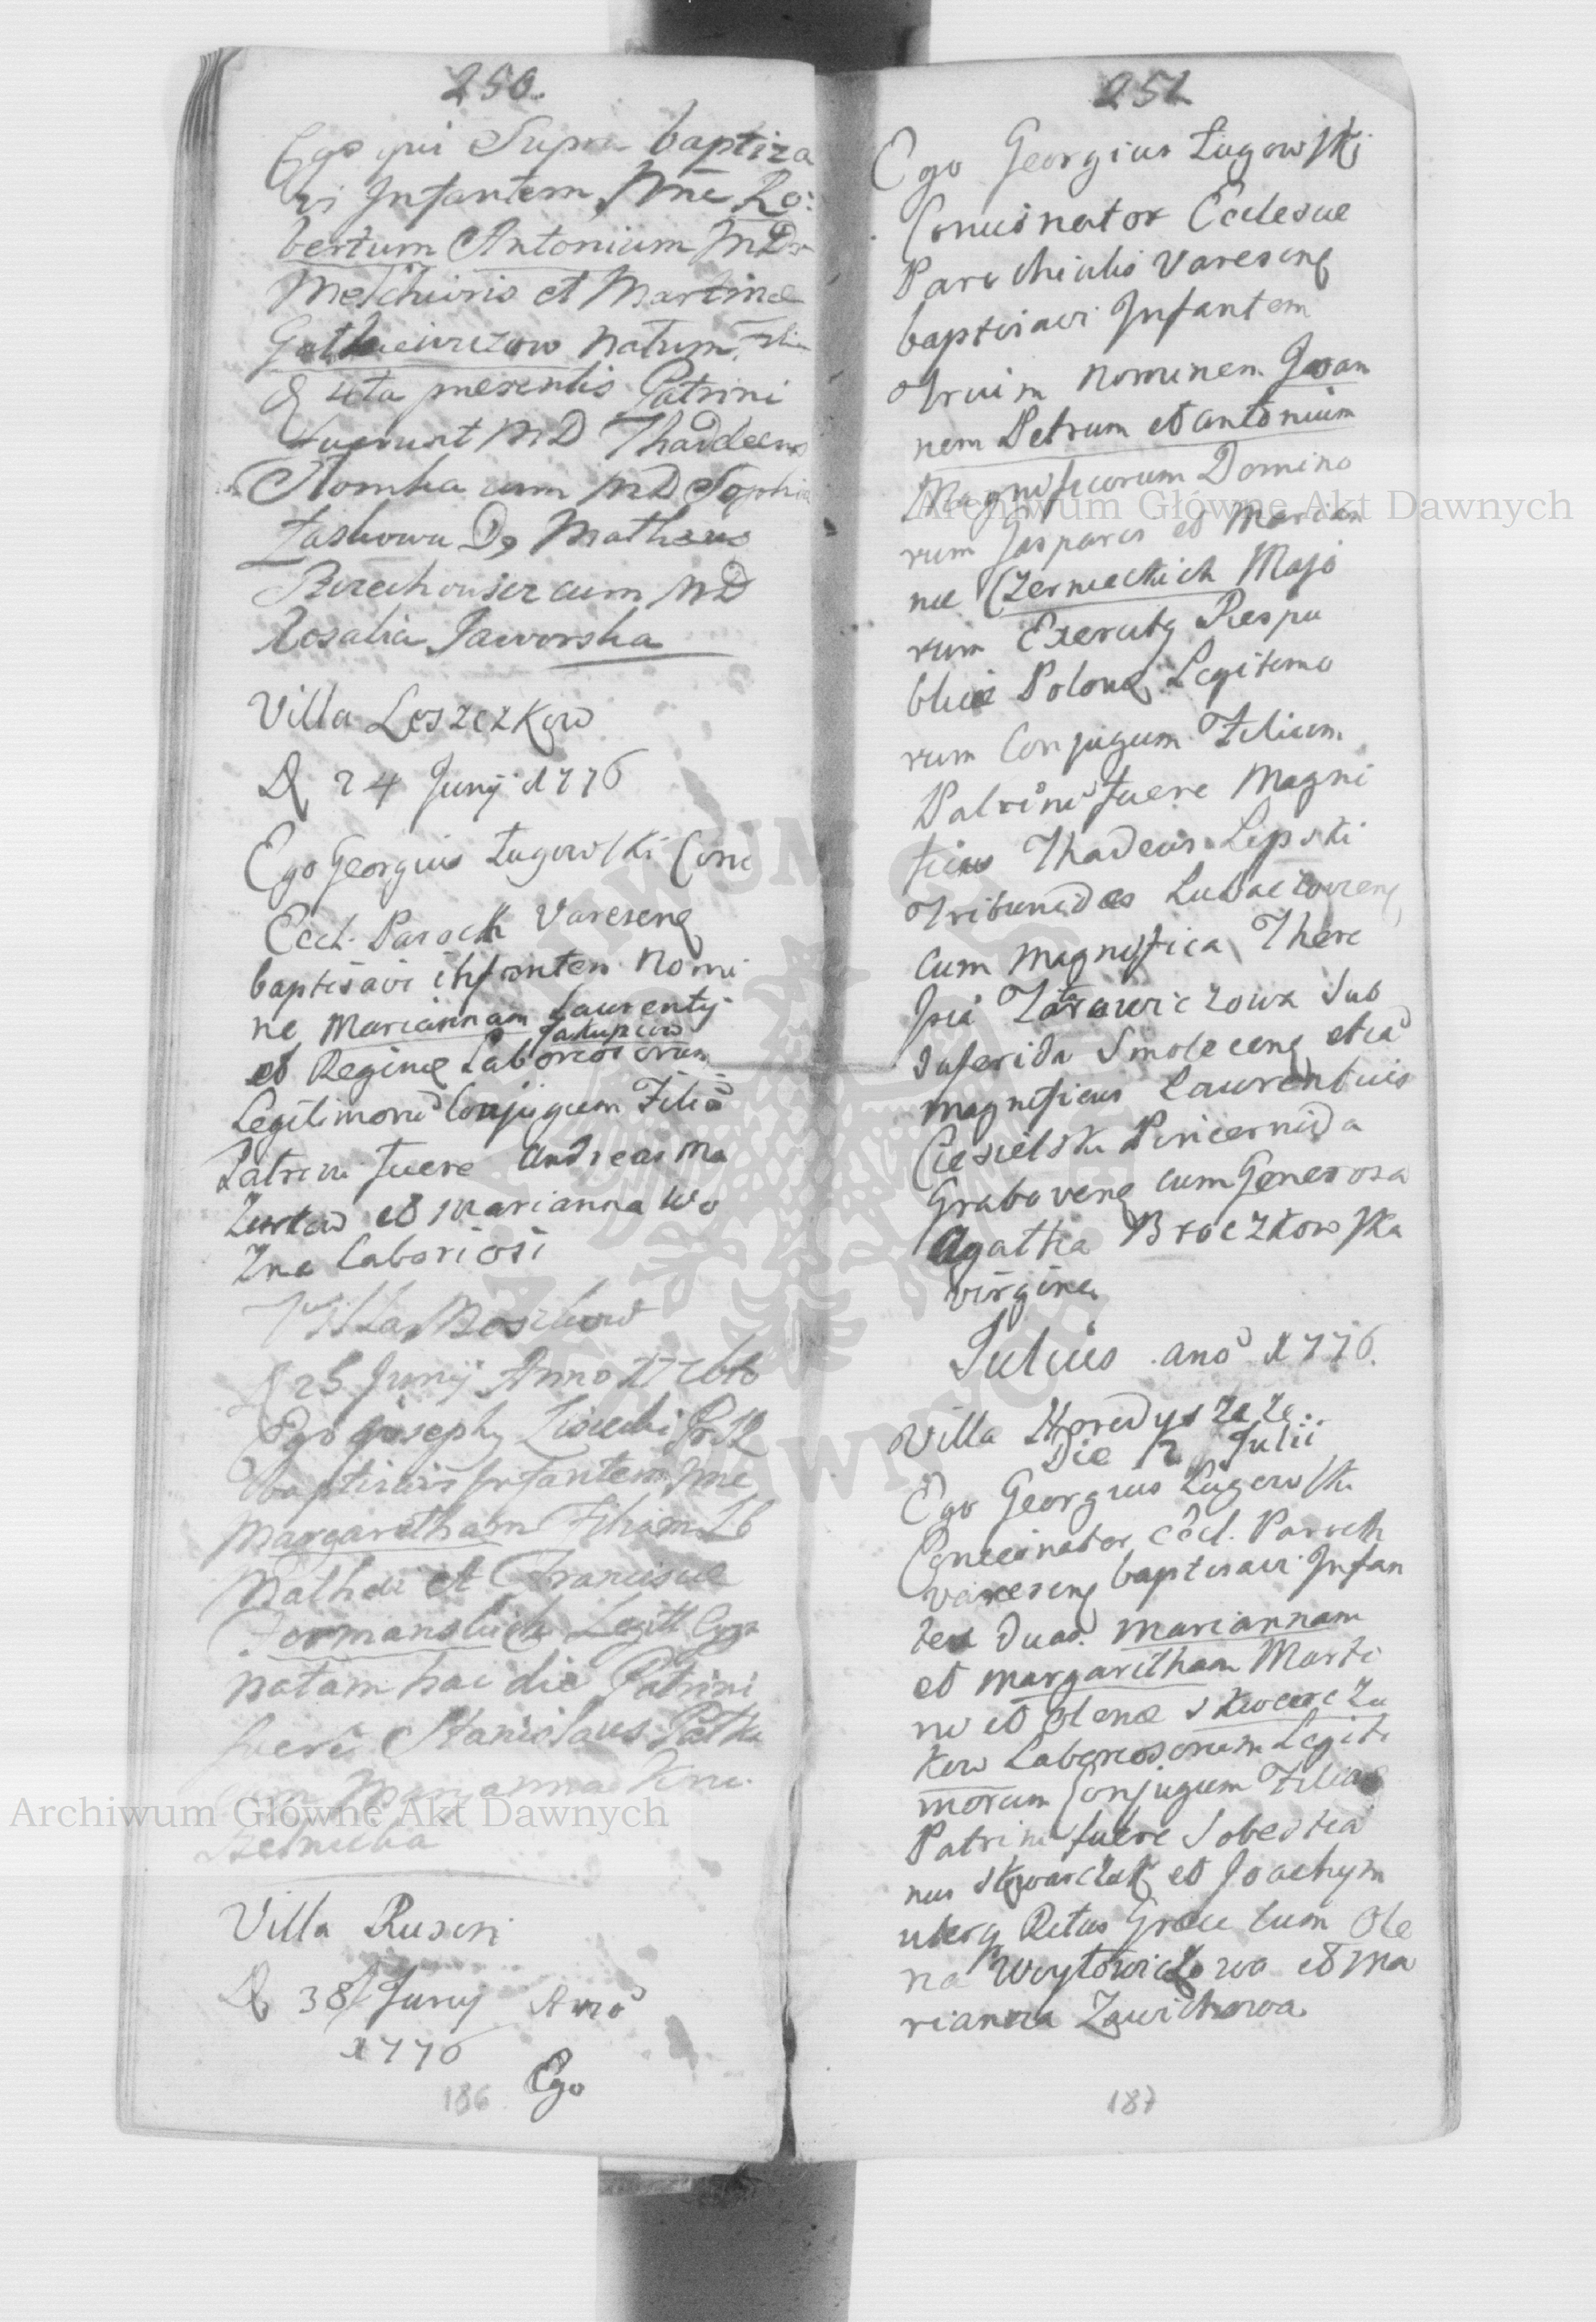 250.
Ego qui Supra baptiza
vi Infantem Nne Ro:
bertum Antonium MD
Melchioris et Martinæ
natum
præsentis Patrini
fuerunt MD Thaddeus
cum MD Sophia
D, Matheus
cum MD
Rosalia Jaworska
Villa Leszczkow
D, 24 Junij 1776
Ego Georgius Ługowski Conc
Eccl. Paroch Varesenę
baptisavi infantem Nomi
ne Mariannam Laurentij
Jakupcow
et Reginę Laboriosorum
Legitimorū Conjugum Filiā
Patrini fuere Andreas Ma
zurков et Marianna Wo
zna Laboriosi
Villa
D 25 Junij Anno 1776to
Ego Joseph,
baptisavi Infantem Nne
Margaretham Filiam Lb
Mathei et Franciscæ
Furmanskich Legitt Conju
natam hac die Patrini
fuere Stanislaus
cum Maryanna
Villa Rusin
D, 38 Junij Annō
1776
Ego
186
251
Ego Georgius Ługowski
Concionator Ecclesiæ
Parochialis Varesenę
baptisavi Infantem
trium Nominem Joan
nem Petrum et Antonium
Magnificorum Domino
rum Gasparis et Marian
næ Czerniechich Majo
rum Exercitę Respu
blicæ Polonę Legitimo
rum Conjugum Filium
Patrini fuere Magni
ficus Thadeus Lipski
Tribunides Lubaczoviens
cum Magnifica There
sia Sub
daferida Smolecenę etiā
Magnificus Laurentius
Ciesielski Pincernida
Grabovenę cum Generosa
Agatha Broczkowska
virgine
Julius anō 1776.
Villa Horodyszcze.
Die 12 Julii
Ego Georgius Ługowski
Concionator Eccl. Paroch
varesenę baptisavi Infan
tes duas Mariannam
et Margaritham Marti
ni et Olenæ Skwarcza
kow Laboriosorum Legiti
morum Conjugum Filias
Patrini fuere Sobestia
nus Skwarczak et Joachym
uterq Ritus Græci cum Ole
na Woytowiczowa et Ma
rianna Zawichowa
187
Archiwum Główne Akt Dawnych
Archiwum Główne Akt Dawnych